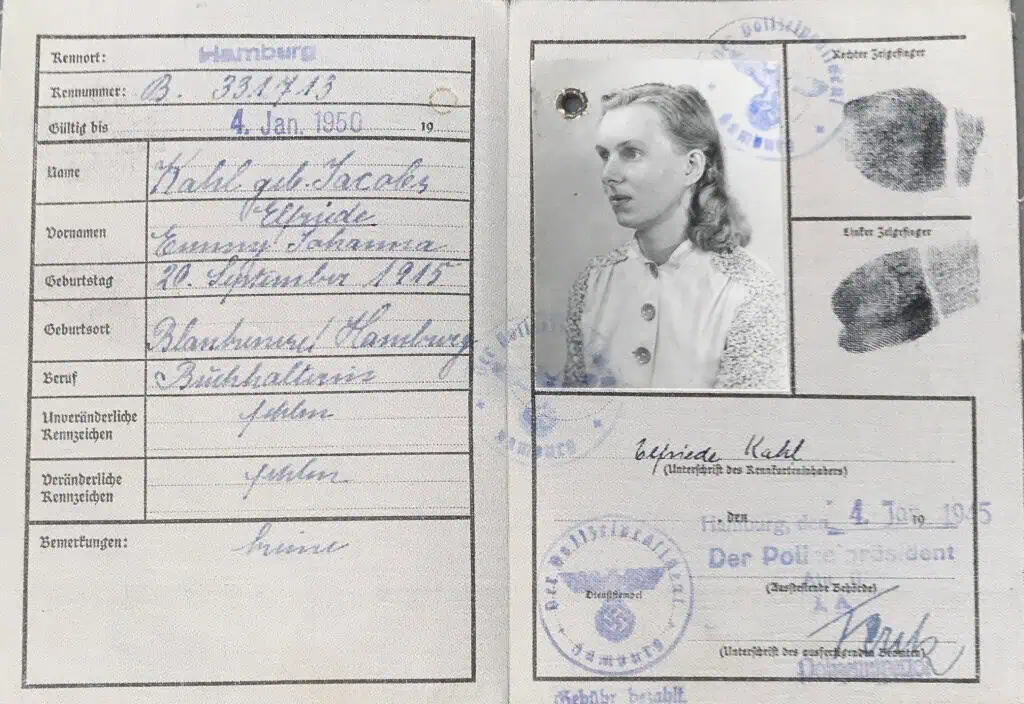 Kennort: Hamburg
Kennummer: B. 331713
Gültig bis 4. Jan. 1950 19
Name Kahl geb. Jacobs
Elfriede
Vornamen Emmy Johanna
Geburtstag 20. September 1915
Geburtsort Blankenese/ Hamburg
Beruf Buchhalterin
Unveränderliche Kennzeichen fehlen
Veränderliche Kennzeichen fehlen
Bemerkungen: keine
Der Polizeipräsident
Hamburg
Rechter Zeigefinger
Linker Zeigefinger
Der Polizeipräsident
Hamburg
Elfriede Kahl
(Unterschrift des Kennkarteninhabers)
Hamburg, den , den 4. Jan. 19 1945
Der Polizeipräsident
(Ausstellende Behörde)
I. A.
(Unterschrift des ausfertigenden Beamten)
Der Polizeipräsident
Dienststempel
Hamburg
Gebühr bezahlt.